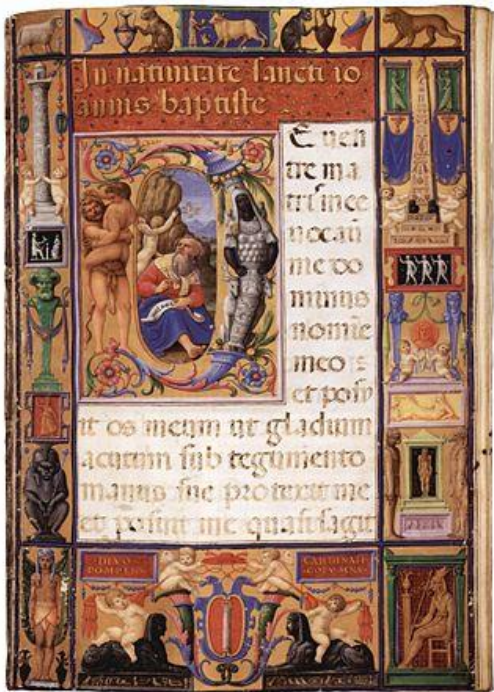 In natiuitate sancti io
annis baptiste
E uen
tre ma
tris mee
uocaū
me do
minus
nomīe
meo :
et posu
it os meum ut gladium
acutum sub tegumento
manus sue protexit me
et posuit me quasi sagit
DIVO
POMPEIO
CARDINALI
COLVMNAE